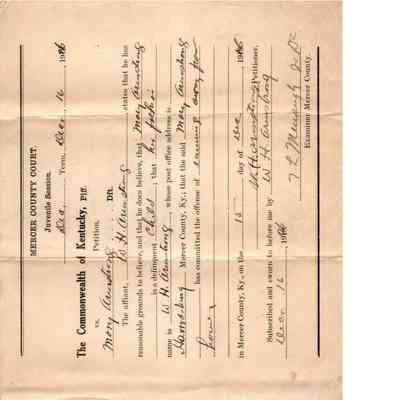 MERCER COUNTY COURT.
Juvenile Session.
Dec, Term, Dec 16, 1916
The Commonwealth of Kentucky, Plff.
vs. Petition.
Mary Armstrong Dft.
The affiant, W H Armstrong states that he has
reasonable grounds to believe, and that he does believe, that Mary Armstrong
is a delinquent Child; that his
name is W H Armstrong, whose post office address is
Harrodsburg Mercer County, Ky.; that the said Mary Armstrong
has committed the offense of running away from
home
in Mercer County, Ky., on the 15 day of Dec 1916
W H Armstrong Petitioner.
Subscribed and sworn to before me by W H Armstrong
Dec 16 1916
Examiner Mercer County.